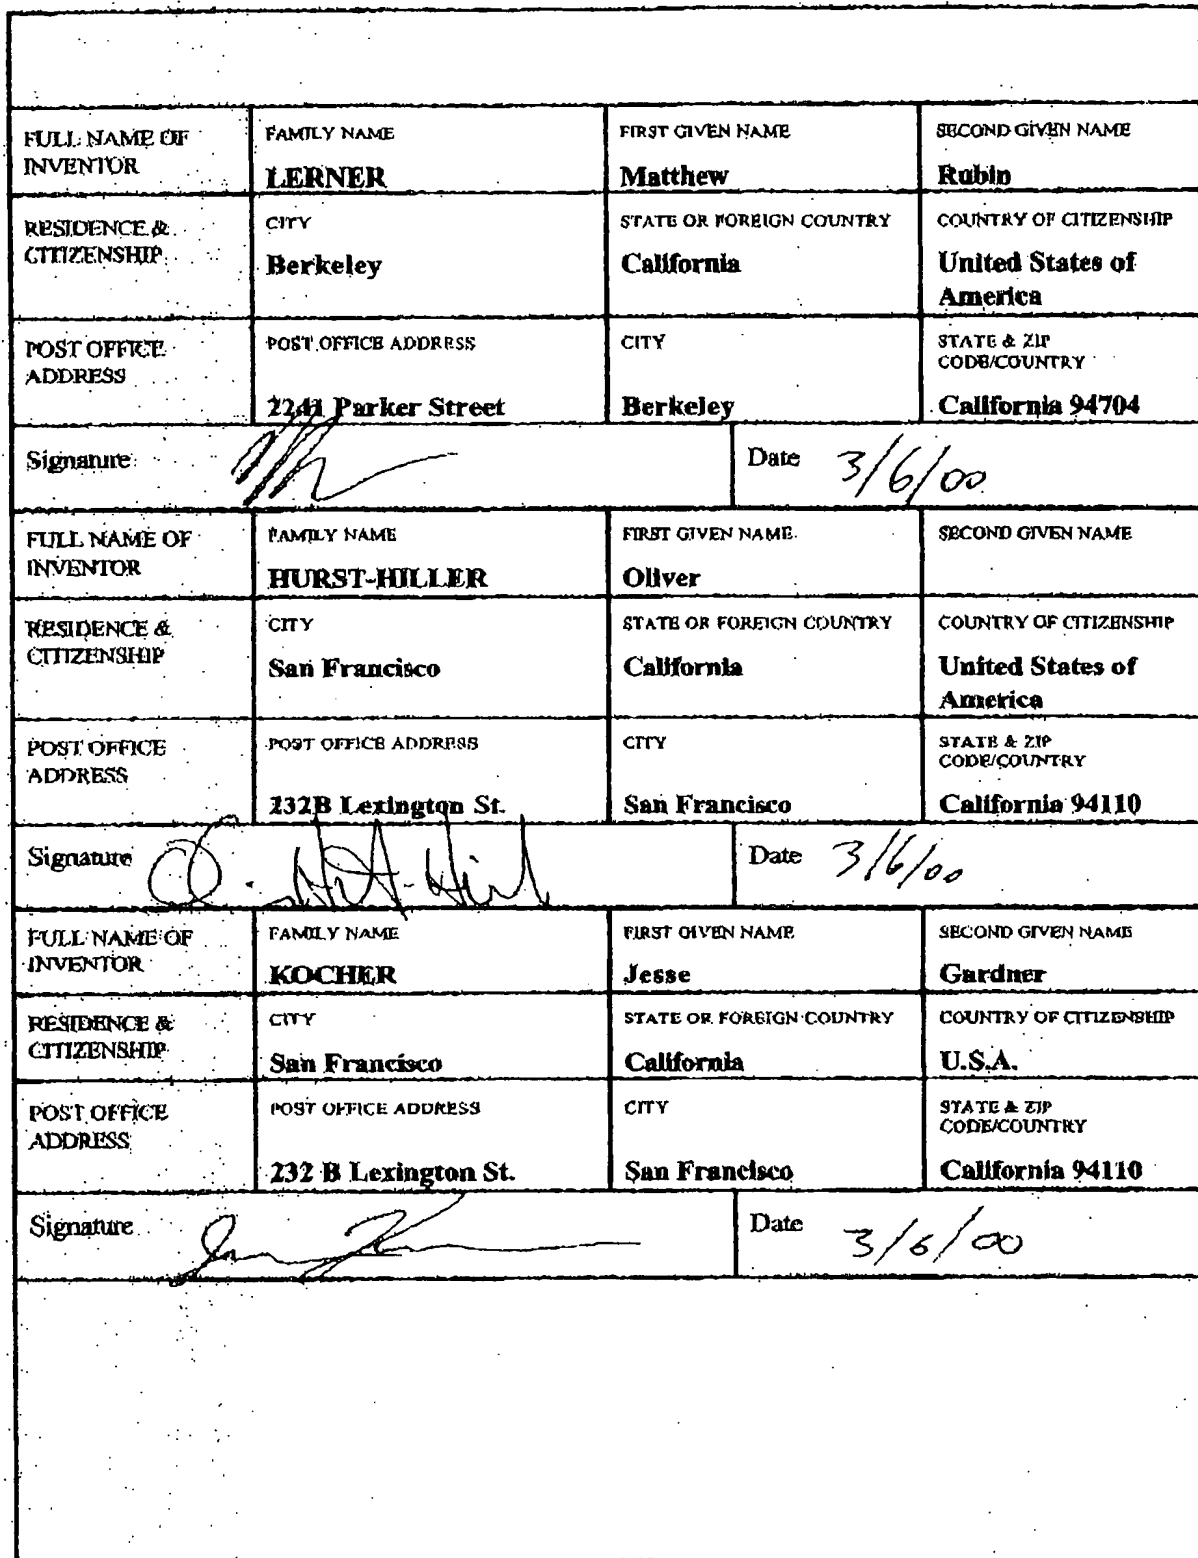 FULL NAME OF INVENTOR
FAMILY NAME
LERNER
FIRST GIVEN NAME
Matthew
SECOND GIVEN NAME
Rubin
RESIDENCE & CITIZENSHIP
CITY
Berkeley
STATE OR FOREIGN COUNTRY
California
COUNTRY OF CITIZENSHIP
United States of
America
POST OFFICE ADDRESS
POST OFFICE ADDRESS
2241 Parker Street
CITY
Berkeley
STATE & ZIP
CODE/COUNTRY
California 94704
Signature
Date 3/6/00
FULL NAME OF INVENTOR
FAMILY NAME
HURST-HILLER
FIRST GIVEN NAME
Oliver
SECOND GIVEN NAME
RESIDENCE & CITIZENSHIP
CITY
San Francisco
STATE OR FOREIGN COUNTRY
California
COUNTRY OF CITIZENSHIP
United States of
America
POST OFFICE ADDRESS
POST OFFICE ADDRESS
232B Lexington St.
CITY
San Francisco
STATE & ZIP
CODE/COUNTRY
California 94110
Signature
Date 3/6/00
FULL NAME OF INVENTOR
FAMILY NAME
KOCHER
FIRST GIVEN NAME
Jesse
SECOND GIVEN NAME
Gardner
RESIDENCE & CITIZENSHIP
CITY
San Francisco
STATE OR FOREIGN COUNTRY
California
COUNTRY OF CITIZENSHIP
U.S.A.
POST OFFICE ADDRESS
POST OFFICE ADDRESS
232 B Lexington St.
CITY
San Francisco
STATE & ZIP
CODE/COUNTRY
California 94110
Signature
Date 3/6/00